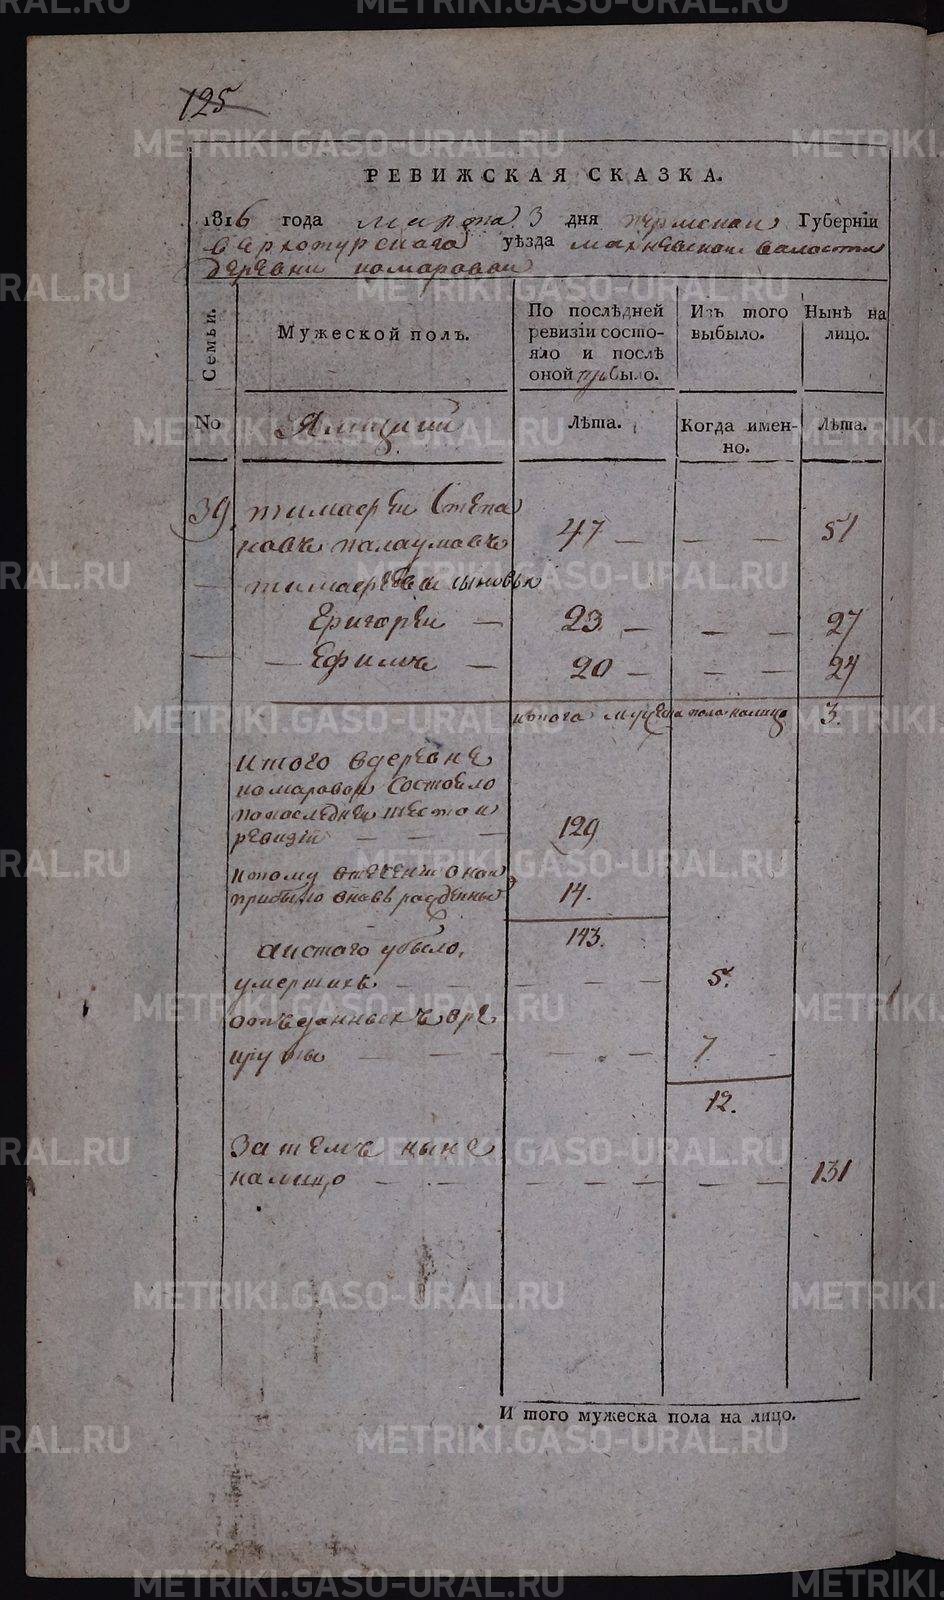 125
РЕВИЖСКАЯ СКАЗКА.
1816 года марта 3 дня пермской Губерніи
верхотурскаго уѣзда махневской валости
деревни комаровой
Семьи.
Мужеской полъ.
По послѣдней ревизіи состояло и послѣ оной прибыло.
Изъ того выбыло.
Нынѣ на лицо.
No
Ямщики
Лѣта.
Когда именно.
Лѣта.
39 тимаѳеи Степа
новъ 47 — — — 51
— тимаѳеевы сыновья
Григореи — 23 — — — 27
— — Ефимъ — 20 — — — 24
итого мужеска пола налицо 3.
Итого вдеревне
комаровой состояло
попоследней шестой
ревизіи — — — 129
ктому втечении оной
прибыло вновь рожденных 14.
143.
аистого убыло,
умерших — — — — — 5.
отъданныхъ вре
круты — — — — — 7. -
12.
Затемъ ныне
налицо — — — — — — — 131
И того мужеска пола на лицо.
METRIKI.GASO-URAL.RU